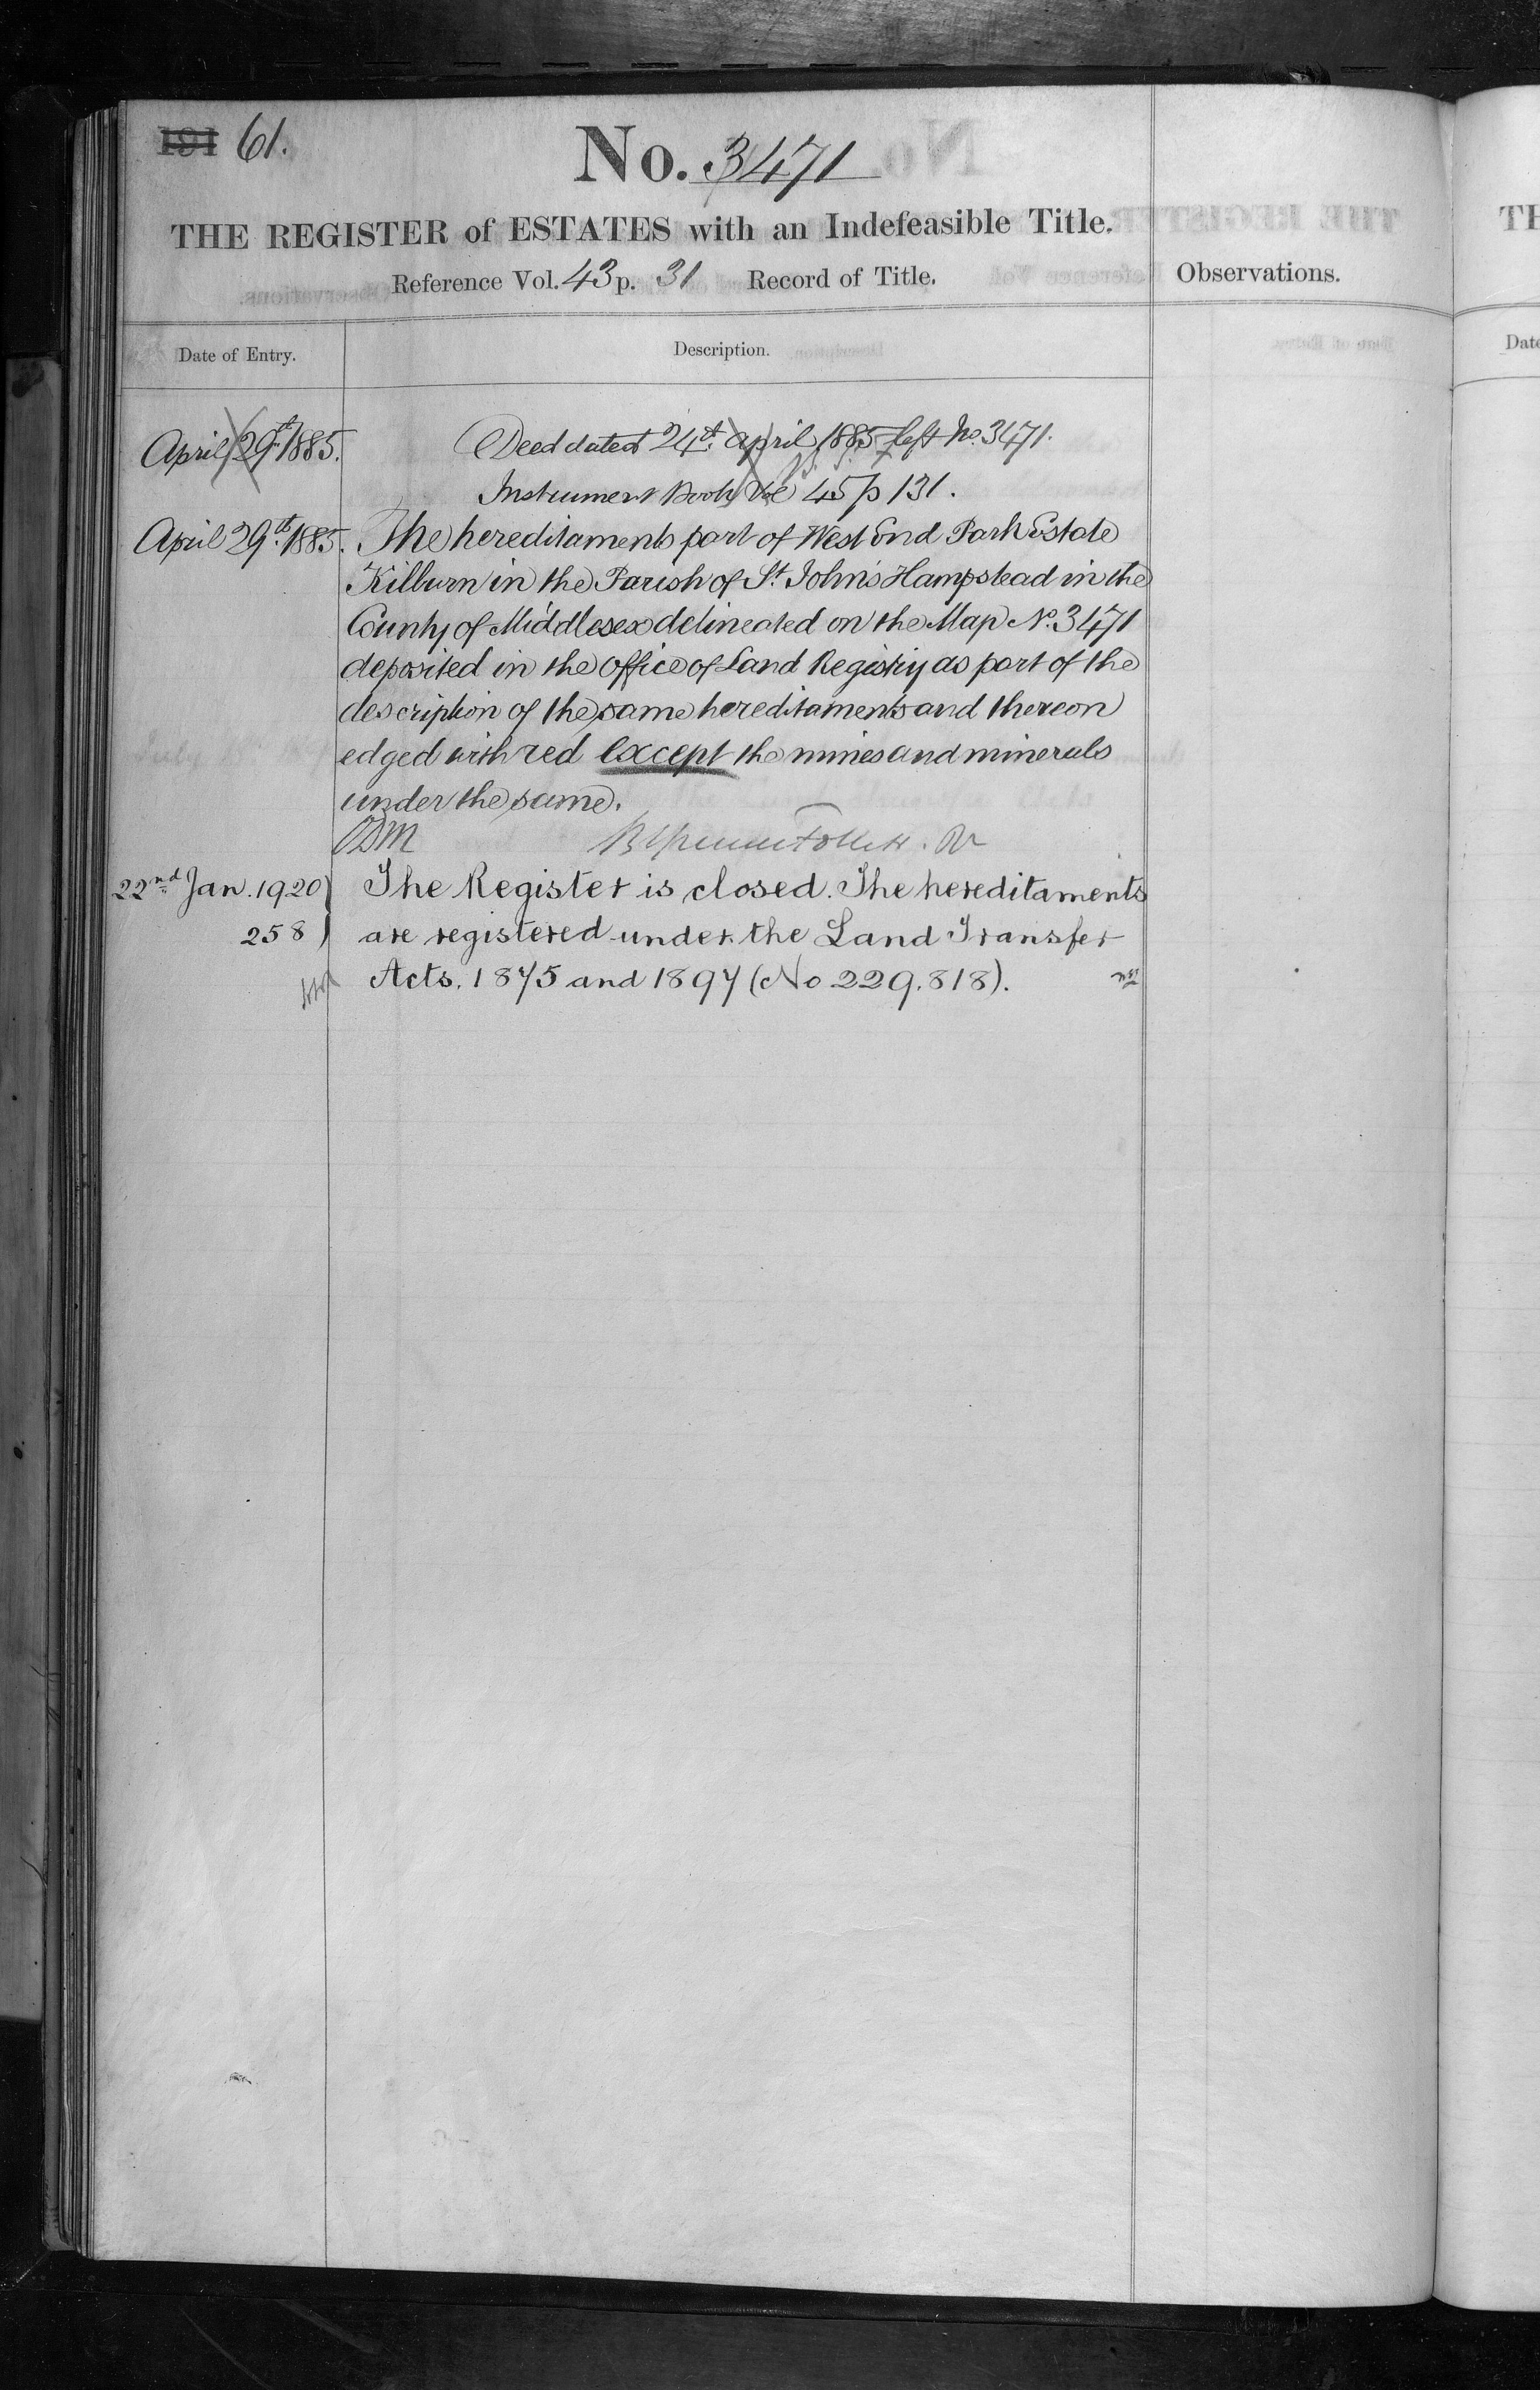 191 61.
No. 3471
THE REGISTER of ESTATES with an Indefeasible Title.
Reference Vol. 43 p. 31 Record of Title.
Observations.
Date of Entry.
Description.
April 29th 1885.
Deed dated 24th April 1885 left No. 3471.
Instrument Book Vol 45 p 131.
April 29th 1885.
The hereditaments part of West End Park Estate
Kilburn in the Parish of St. John's Hampstead in the
County of Middlesex delineated on the Map No. 3471
deposited in the office of Land Registry as part of the
description of the same hereditaments and thereon
edged with red except the mines and minerals
under the same.
22nd Jan. 1920
The Register is closed. The hereditaments
258
are registered under the Land Transfer
Acts. 1875 and 1897 (No 229.818).
TH
Date